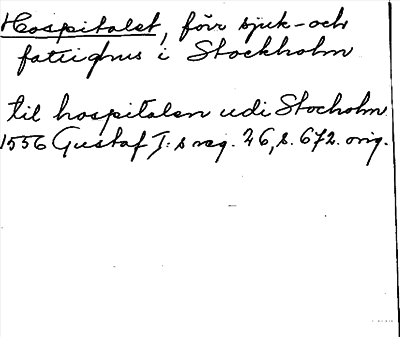 Hospitalet, förr sjuk- och
fattighus i Stockholm
til hospitalen udi Stocholm
1556 Gustaf I:s reg. 26, s. 672. orig.